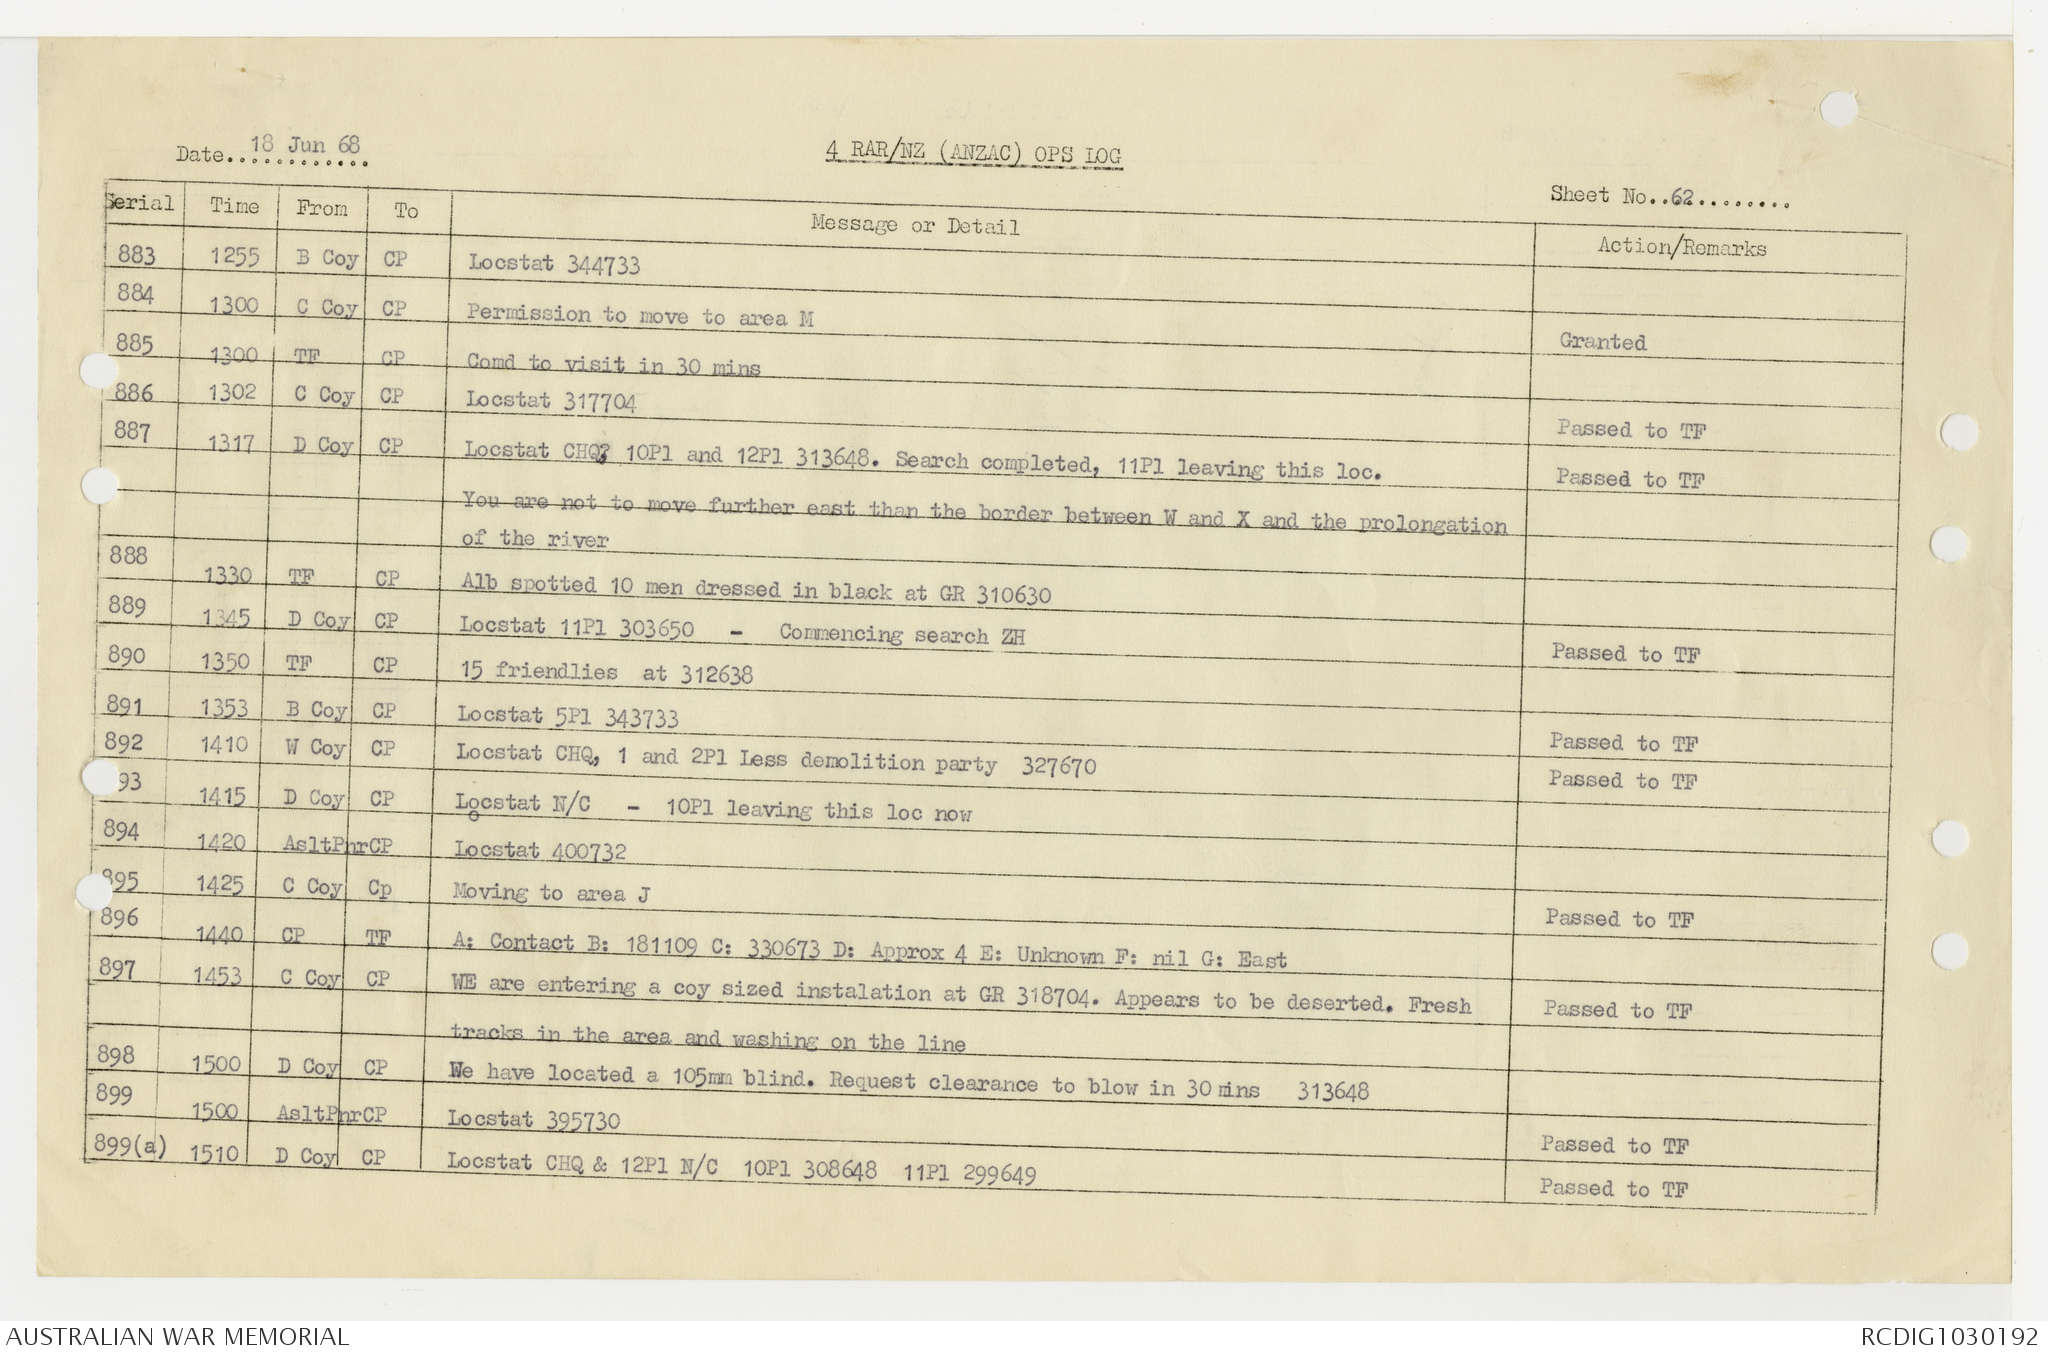 Date............ 18 Jun 68
4 RAR/NZ (ANZAC) OPS LOG
Sheet No..62........
Serial Time From To Message or Detail Action/Remarks
883 1255 B Coy CP Locstat 344733
884 1300 C Coy CP Permission to move to area M Granted
885 1300 TF CP Comd to visit in 30 mins
886 1302 C Coy CP Locstat 317704 Passed to TF
887 1317 D Coy CP Locstat CHQ, 10Pl and 12Pl 313648. Search completed, 11Pl leaving this loc. Passed to TF
You are not to move further east than the border between W and X and the prolongation
of the river
888 1330 TF CP Alb spotted 10 men dressed in black at GR 310630
889 1345 D Coy CP Locstat 11Pl 303650 - Commencing search ZH Passed to TF
890 1350 TF CP 15 friendlies at 312638
891 1353 B Coy CP Locstat 5Pl 343733 Passed to TF
892 1410 W Coy CP Locstat CHQ, 1 and 2Pl Less demolition party 327670 Passed to TF
93 1415 D Coy CP Locstat N/C - 10Pl leaving this loc now
894 1420 AsltPnr CP Locstat 400732
895 1425 C Coy Cp Moving to area J Passed to TF
896 1440 CP TF A: Contact B: 181109 C: 330673 D: Approx 4 E: Unknown F: nil G: East
897 1453 C Coy CP WE are entering a coy sized instalation at GR 318704. Appears to be deserted. Fresh Passed to TF
tracks in the area and washing on the line
898 1500 D Coy CP We have located a 105mm blind. Request clearance to blow in 30 mins 313648
899 1500 AsltPnr CP Locstat 395730 Passed to TF
899(a) 1510 D Coy CP Locstat CHQ & 12Pl N/C 10Pl 308648 11Pl 299649 Passed to TF
AUSTRALIAN WAR MEMORIAL
RCDIG1030192